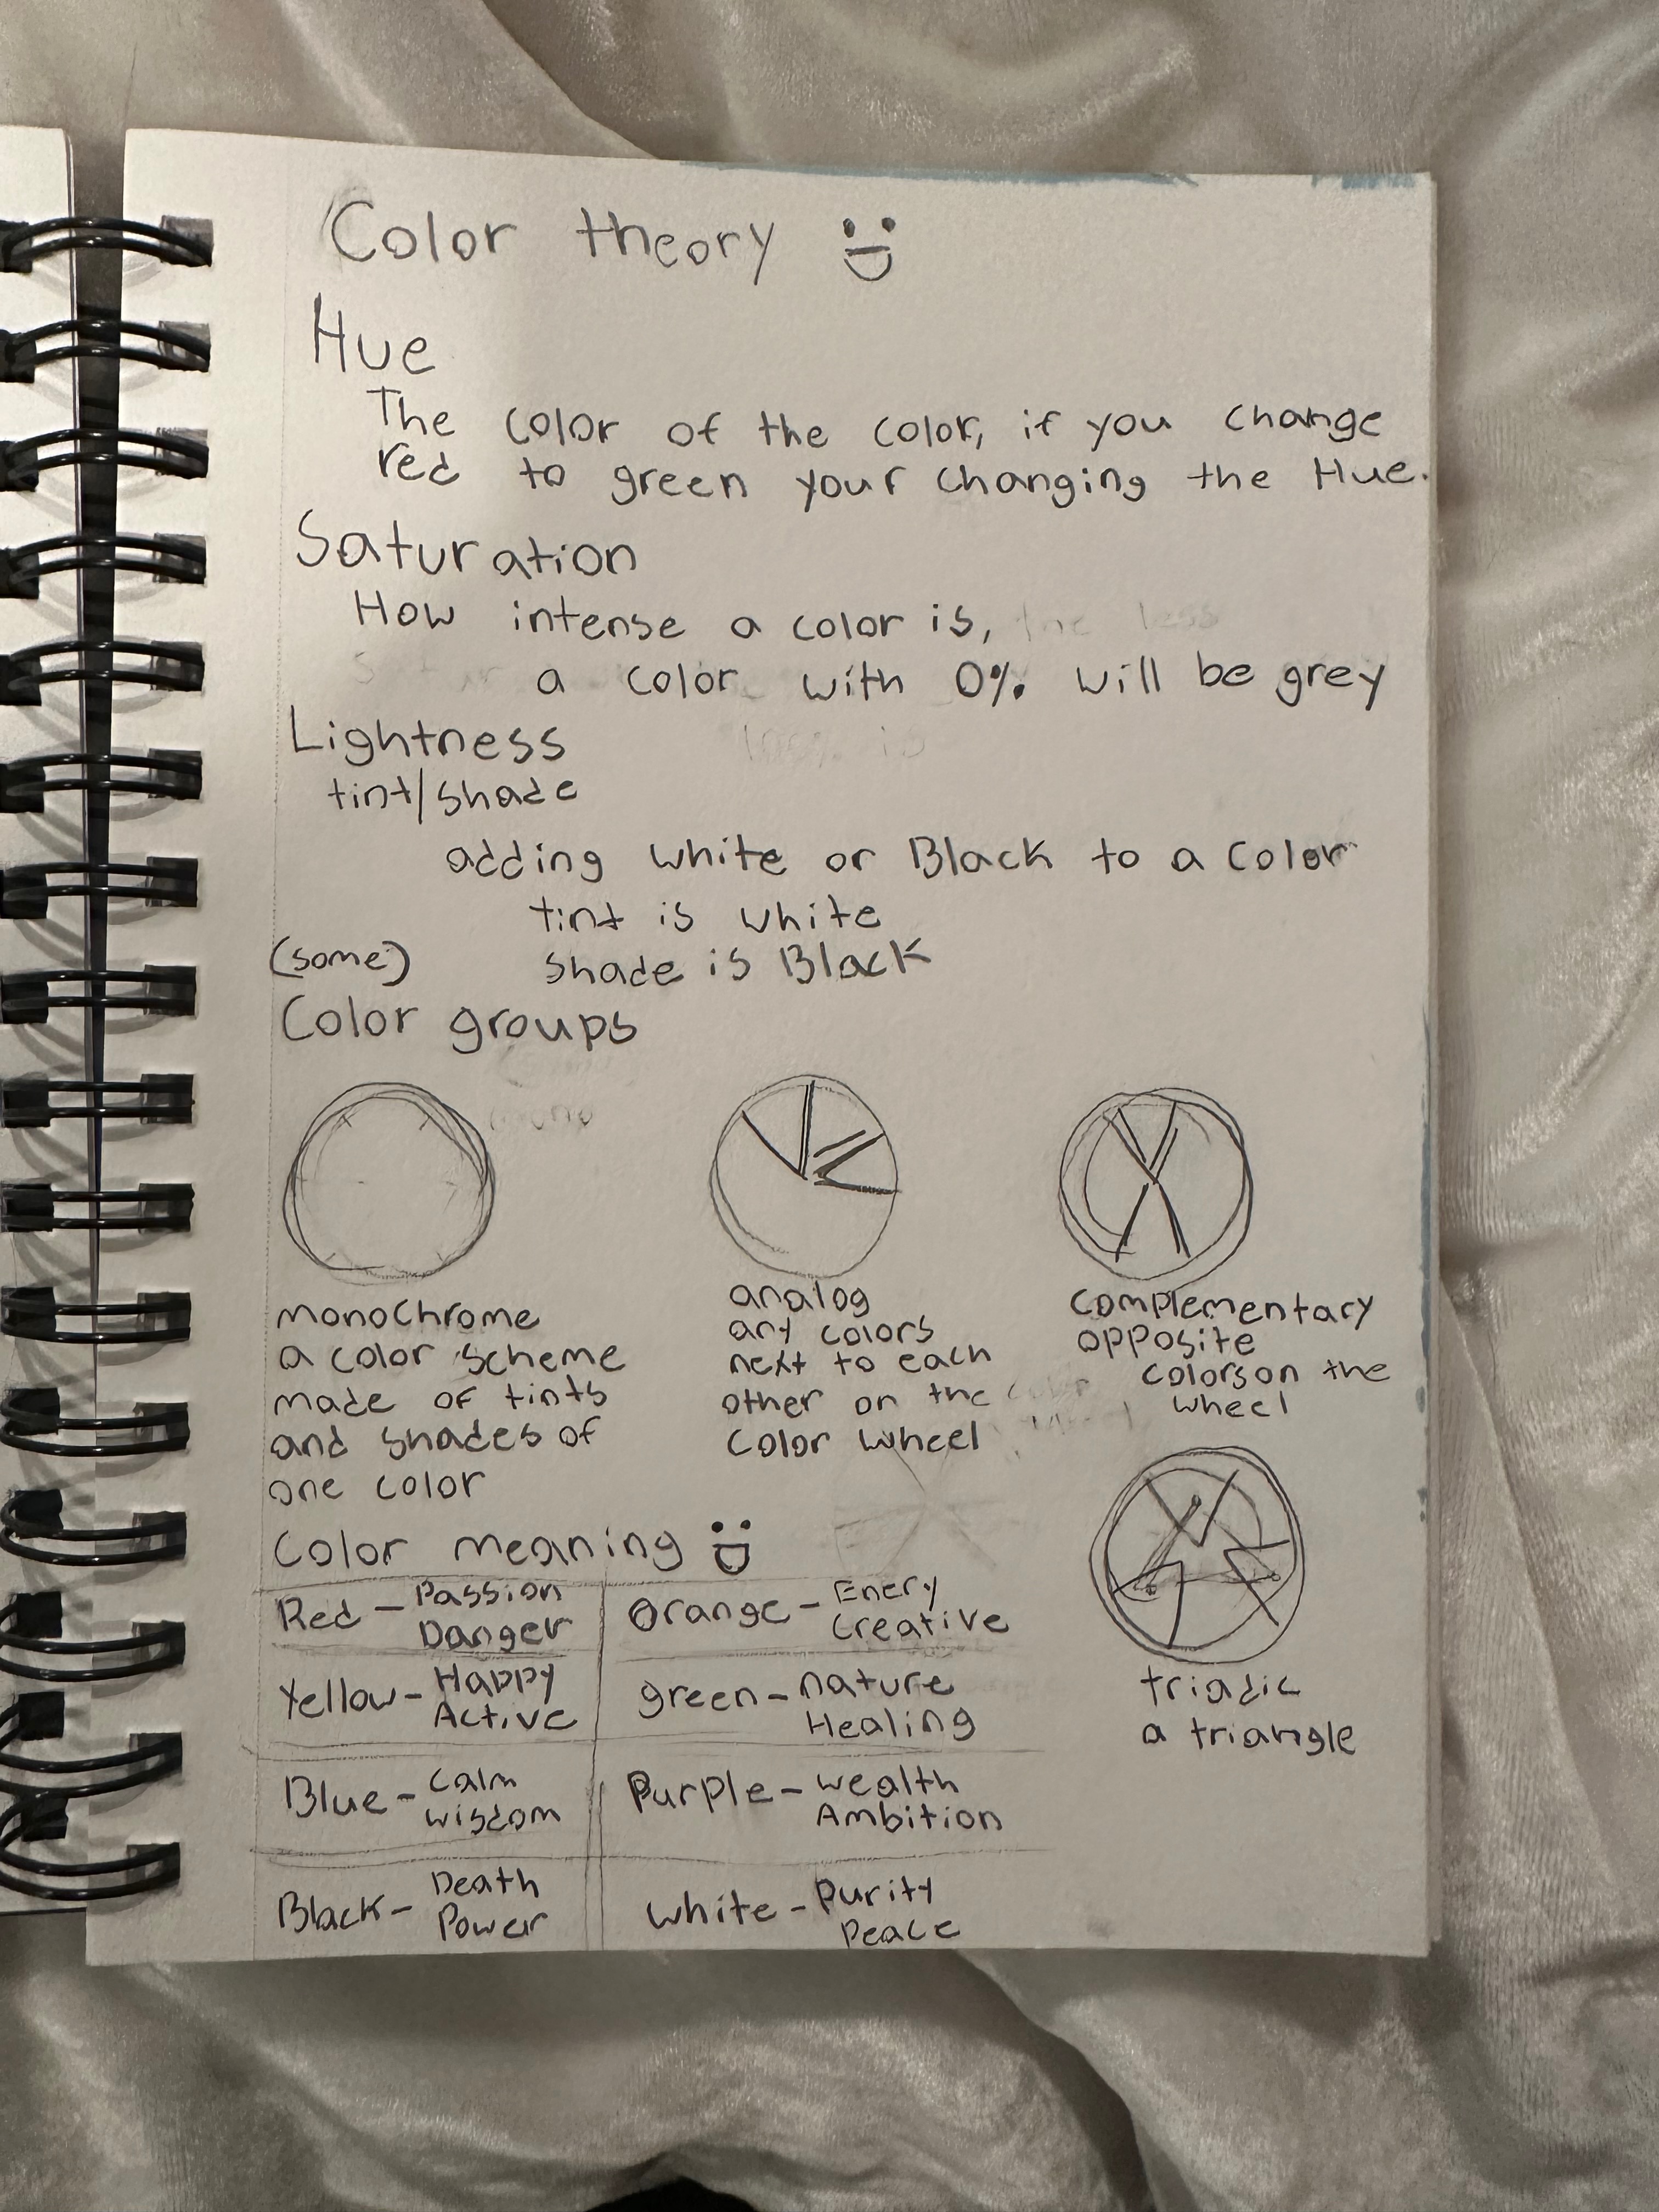 Color theory
Hue
The color of the color, if you change
red to green your changing the Hue.
Saturation
How intense a color is, the less
a color with 0% will be grey
Lightness
tint/shade
adding white or Black to a color
tint is white
shade is Black
(some)
Color groups
monochrome
a color scheme
made of tints
and shades of
one color
analog
any colors
next to each
other on the
color wheel
complementary
opposite
colors on the
wheel
triadic
a triangle
Color meaning
Red - Passion
Danger
Orange - Enery
Creative
Yellow - Happy
Active
green - nature
Healing
Blue - calm
wisdom
Purple - wealth
Ambition
Black - Death
Power
white - Purity
Peace